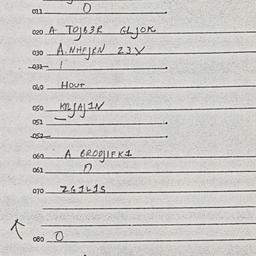 011 0
020 A TOJB3R GLJOK
030 A.NHFJRN 23.V
031 1
040 HOUT
050
051
052
060 A BRODJIFK1
061
070 2G1L1S
080 0